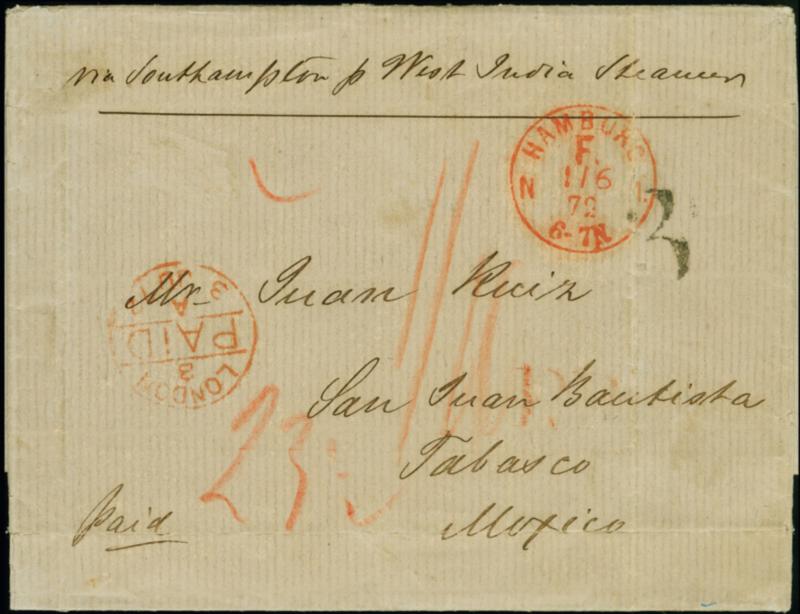 via Southampton p West India Steamer
HAMBURG
F.
1/6
72
6-7N
N 1.
2
Mr. Juan Ruiz
LONDON
3
PAID
San Juan Bautista
23
Tabasco
Paid
Mexico